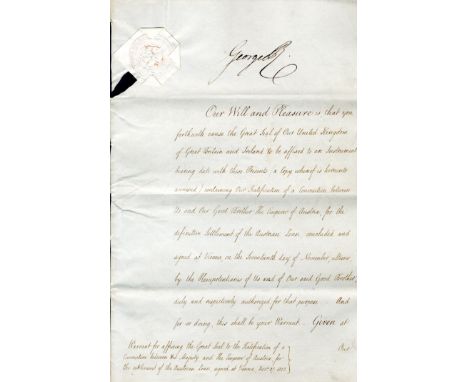 George R.
Our Will and Pleasure is that you
forthwith cause the Great Seal of Our United Kingdom
of Great Britain and Ireland to be affixed to an Instrument
bearing date with these Presents (a Copy whereof is hereunto
annexed) containing Our Ratification of a Convention between
Us and Our Good Brother The Emperor of Austria, for the
definitive Settlement of the Austrian Loan, concluded and
signed at Vienna on the Seventeenth day of November, Ultimo
by the Plenipotentiaries of Us and of Our said Good Brother,
duly and respectively authorized for that purpose. And
for so doing, this shall be your Warrant. Given at
Our
Warrant for affixing the Great Seal to the Ratification of a
Convention between His Majesty and The Emperor of Austria, for
the settlement of the Austrian Loan, signed at Vienna, Nov. 17. 1823